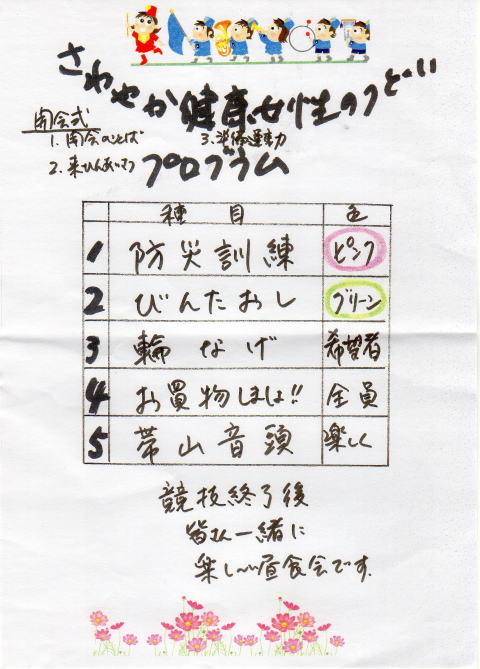 さわやか健康女性のつどい
開会式
1. 開会のことば
3. 準備運動
2. 来ひんあいさつ
プログラム
種目 色
1 防災訓練 ピンク
2 びんたおし グリーン
3 輪なげ 希望者
4 お買物しましょ!! 全員
5 帯山音頭 楽しく
競技終了後
皆さん一緒に
楽しい昼食会です。